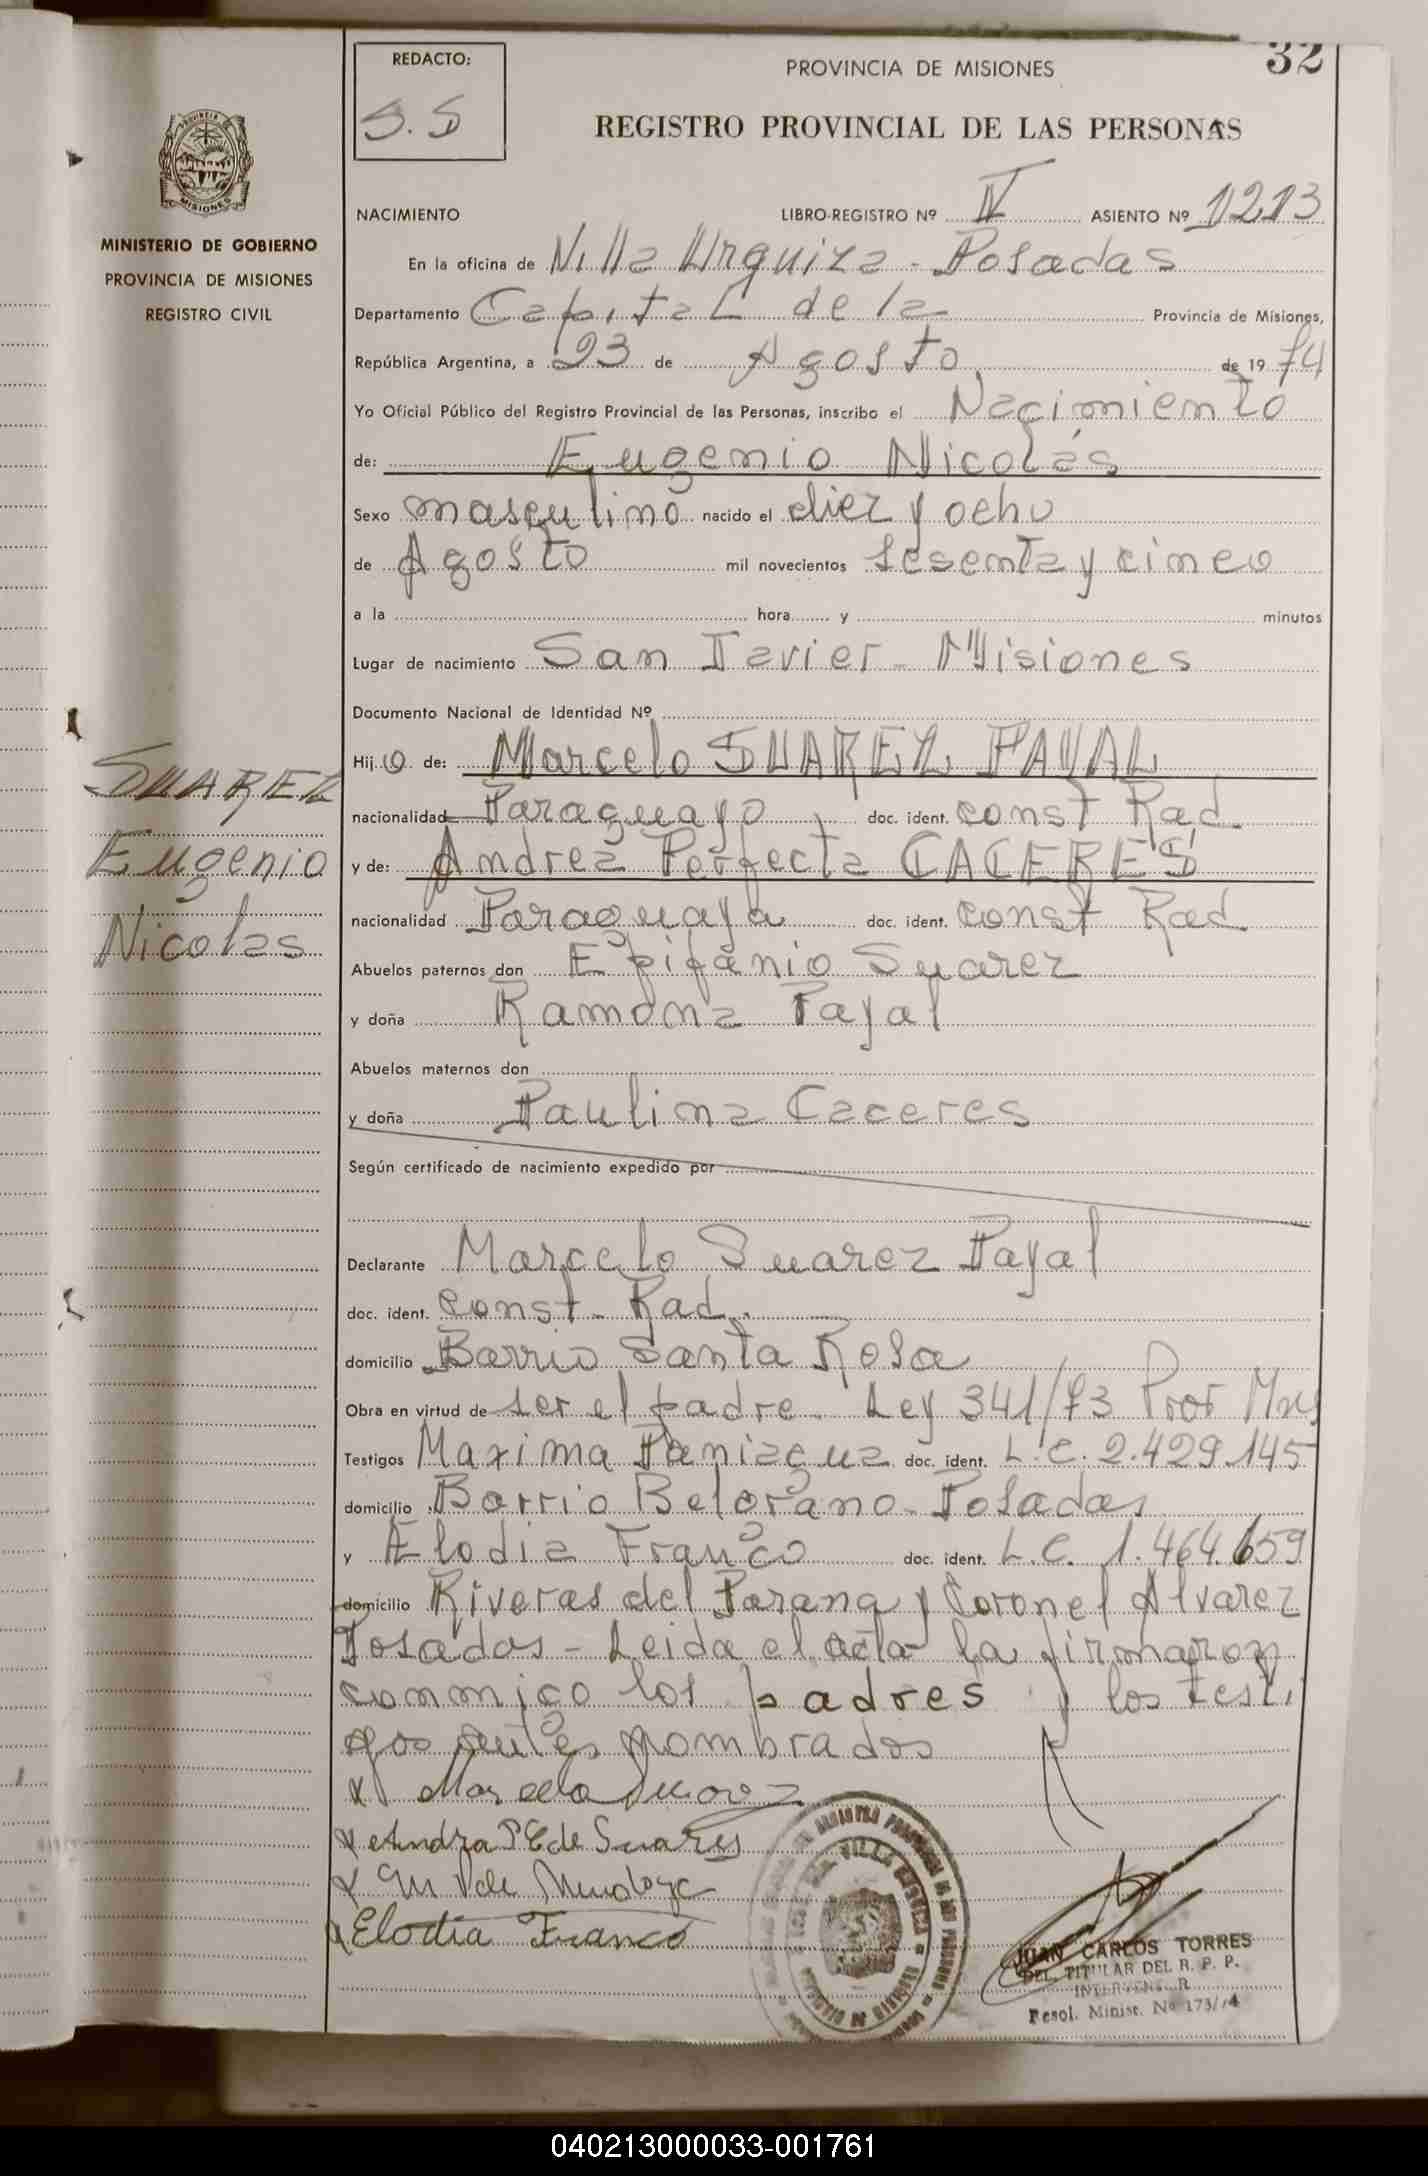 32
REDACTO:
S.S
PROVINCIA DE MISIONES
REGISTRO PROVINCIAL DE LAS PERSONAS
PROVINCIA DE
MISIONES
MINISTERIO DE GOBIERNO
PROVINCIA DE MISIONES
REGISTRO CIVIL
NACIMIENTO LIBRO-REGISTRO Nº IV ASIENTO Nº 1213
En la oficina de Villa Urquiza - Posadas
Departamento Capital de la Provincia de Misiones,
República Argentina, a 23 de Agosto de 1974
Yo Oficial Público del Registro Provincial de las Personas, inscribo el Nacimiento
de: Eugenio Nicolás
Sexo masculino nacido el diez y ocho
de Agosto mil novecientos sesenta y cinco
a la hora y minutos
Lugar de nacimiento San Javier - Misiones
Documento Nacional de Identidad Nº
Hijo de: Marcelo SUAREZ PAYAL
nacionalidad Paraguayo doc. ident. const Rad.
y de: Andrea Perfecta CACERES
nacionalidad Paraguaya doc. ident. const Rad
Abuelos paternos don Epifanio Suarez
y doña Ramona Payal
Abuelos maternos don
y doña Paulina Caceres
Según certificado de nacimiento expedido por
SUAREZ
Eugenio
Nicolas
Declarante Marcelo Suarez Payal
doc. ident. const - Rad.
domicilio Barrio Santa Rosa
Obra en virtud de ser el padre - Ley 341/73
Testigos Maxima doc. ident. L.C. 2.429.145
domicilio Barrio Belgrano - Posadas
y Elodia Franco doc. ident. L.C. 1.464.659
domicilio Riveras del Parana y Coronel Alvarez
Posadas - Leida el acta la firmaron
conmigo los padres y los testi
gos antes nombrados
Marcelo Suarez
Andra P C de Suares
Elodia Franco
JUAN CARLOS TORRES
DEL. TITULAR DEL R. P. P.
Resol. Minist. Nº 173/74
040213000033-001761